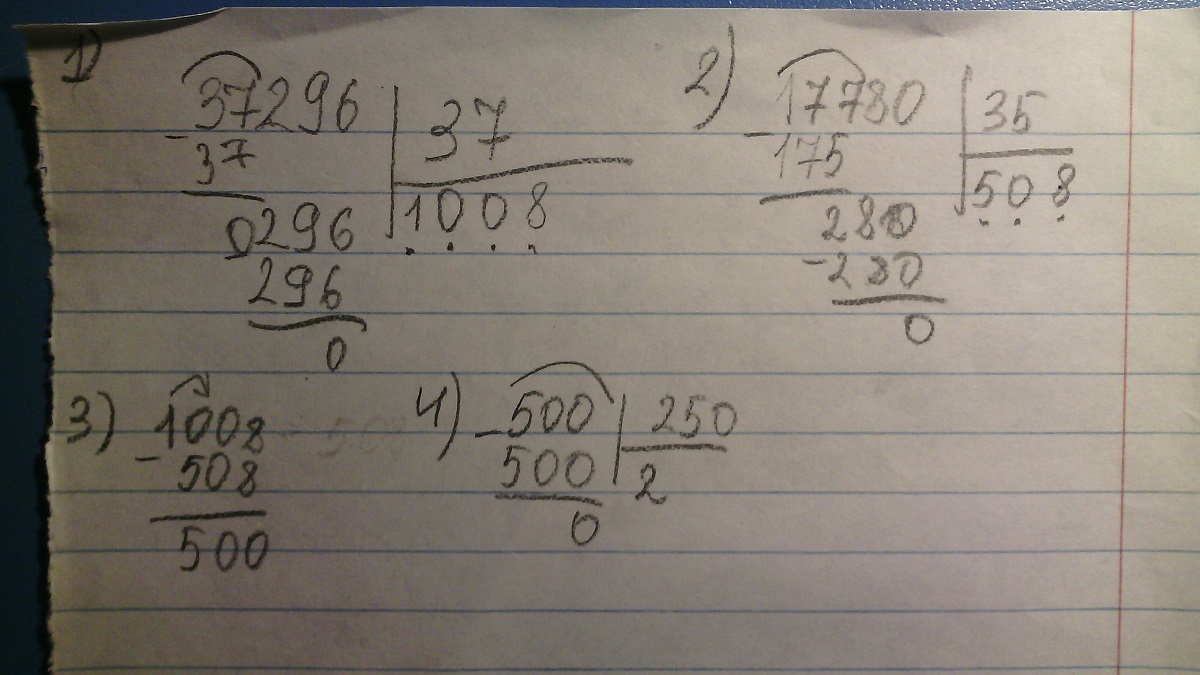 1)
37296 | 37
- 37 | 1008
0296
296
0
2)
17780 | 35
- 175 | 508
280
- 280
0
3)
1008
- 508
500
4)
- 500 | 250
500 | 2
0